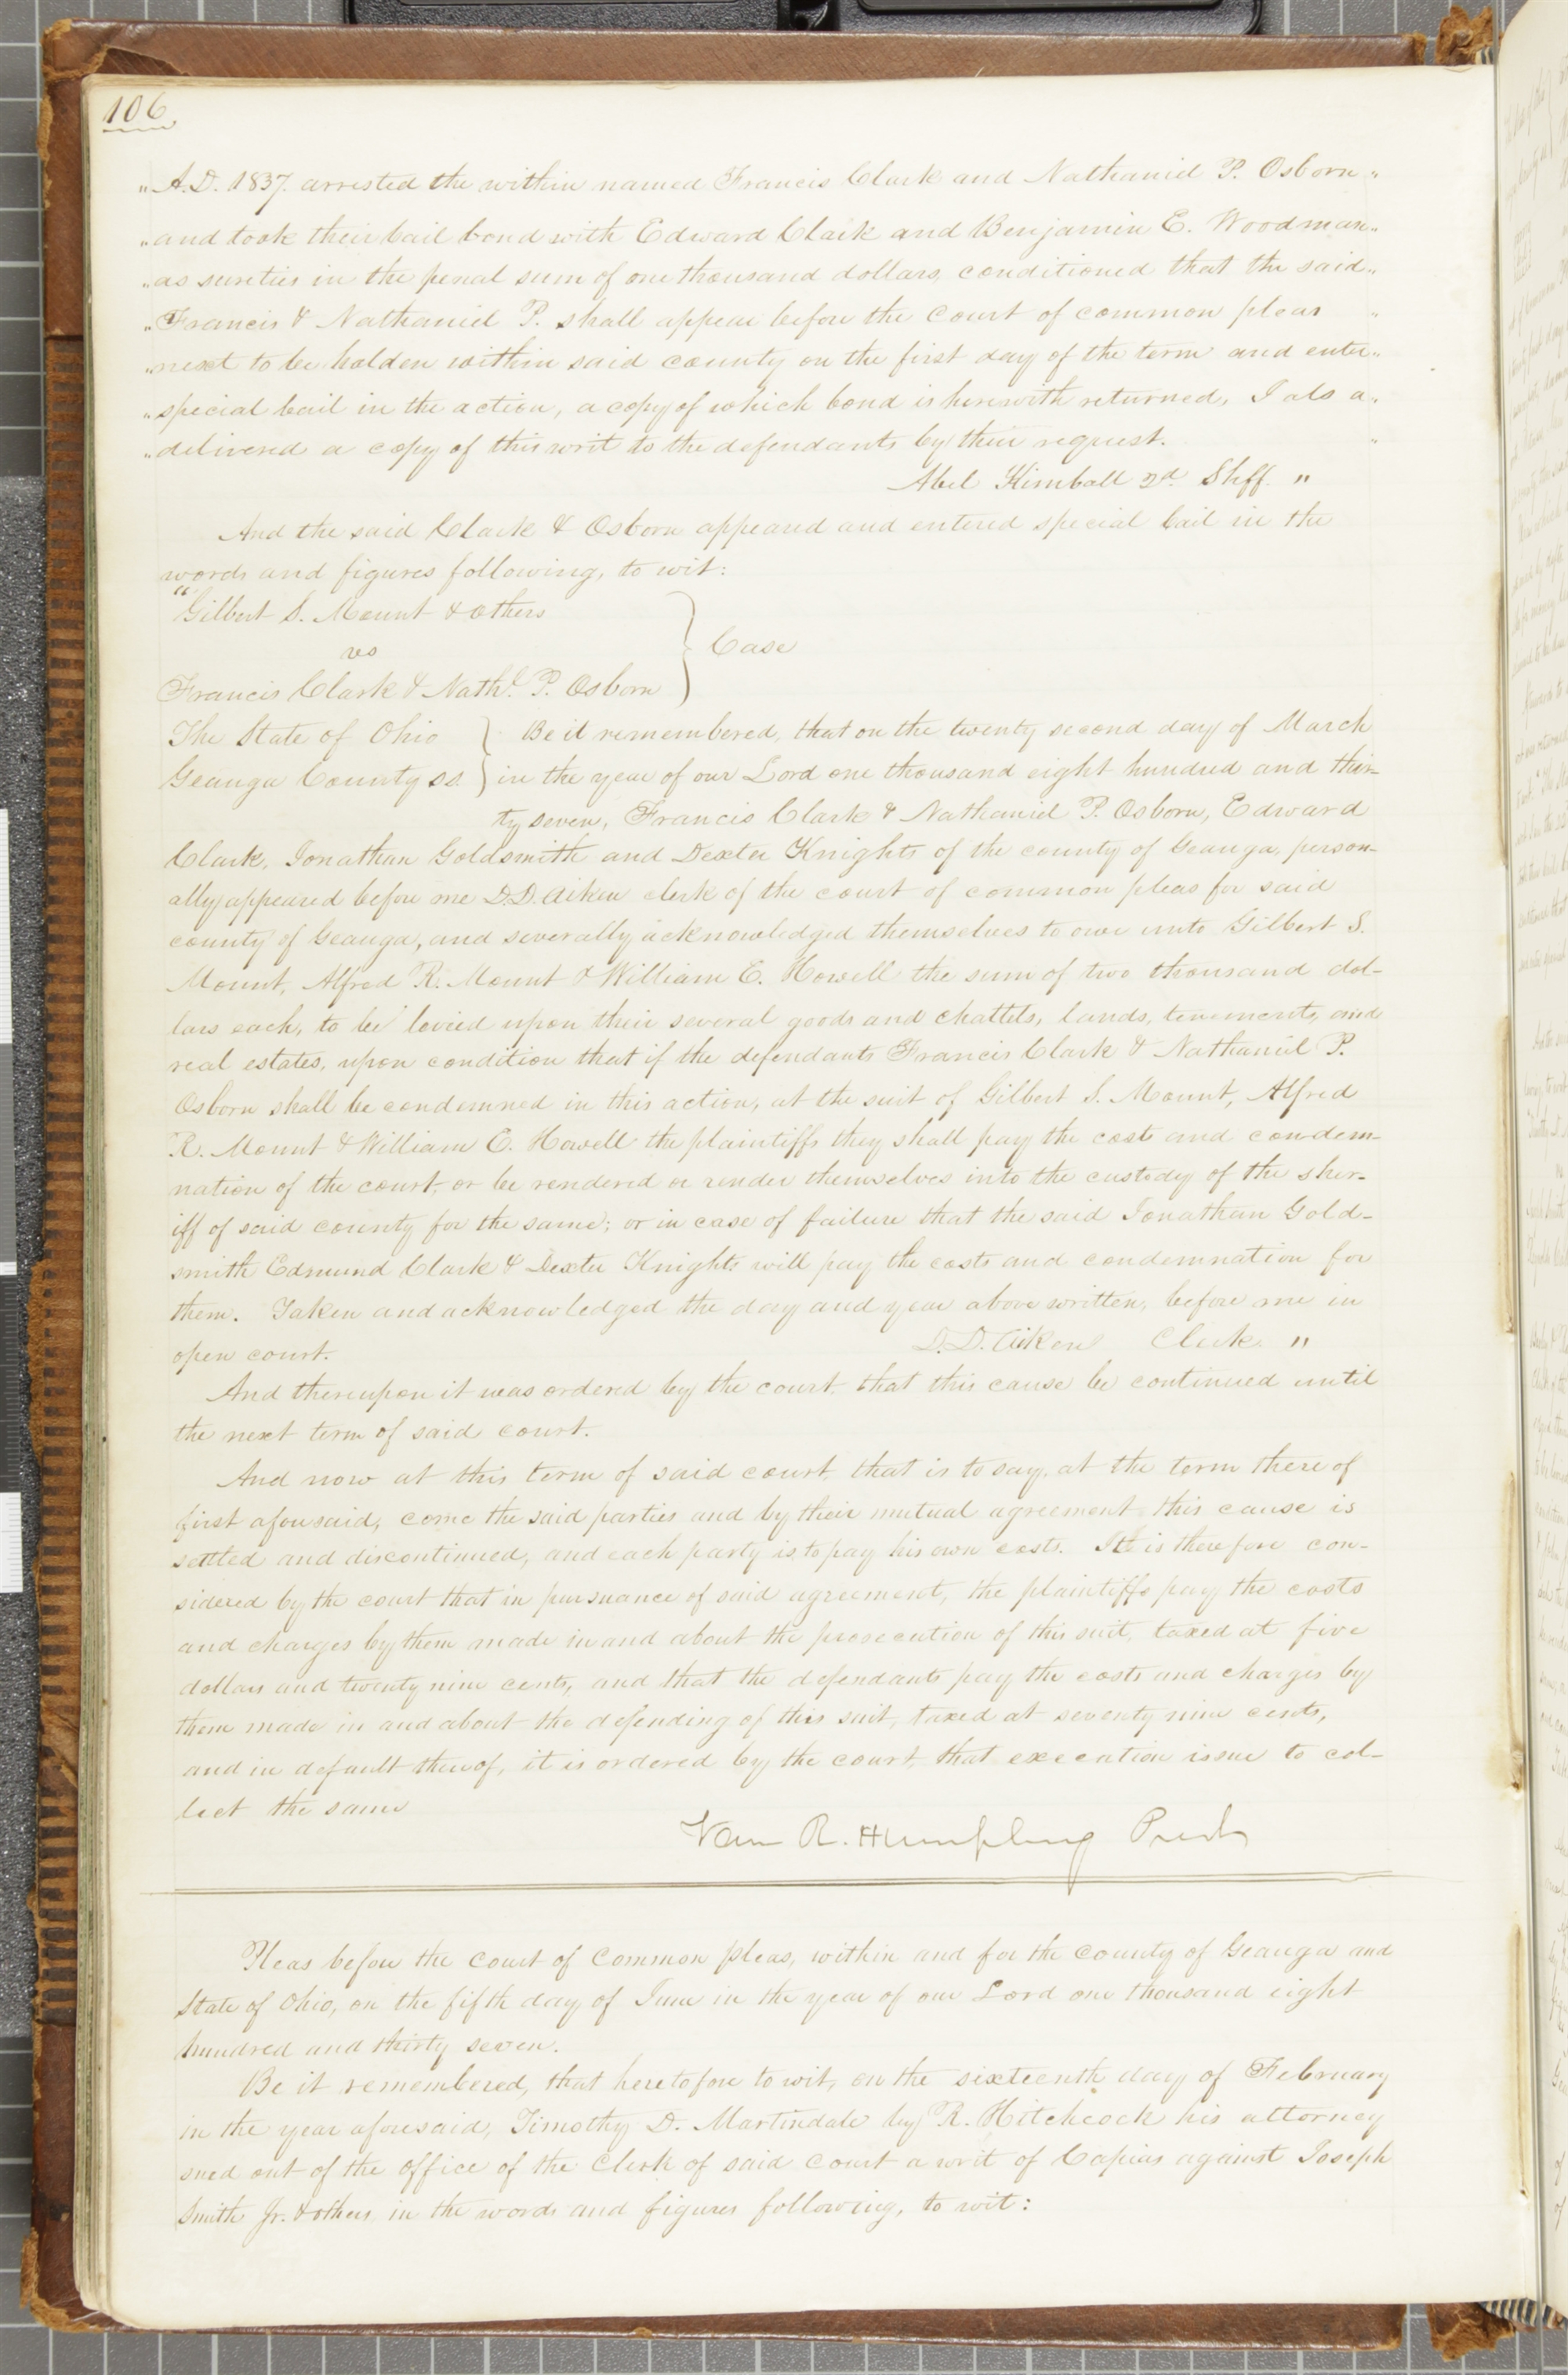 106
„A.D. 1837. arrested the within named Francis Clark and Nathaniel P. Osborn„
„and took their bail bond with Edward Clark and Benjamin E. Woodman„
„as sureties in the penal sum of one thousand dollars, conditioned that the said„
„Francis & Nathaniel P. shall appear before the Court of common pleas „
„next to be holden within said county on the first day of the term and enter„
„special bail in the action, a copy of which bond is herewith returned, I als a„
„delivered a copy of this writ to the defendants by their request. „
Abel Kimball 2d. Shff. "
And the said Clark & Osborn appeared and entered special bail in the
words and figures following, to wit:
"Gilbert S. Mount & others
vs } Case
Francis Clark & Nathl. P. Osborn
The State of Ohio } Be it remembered, that on the twenty second day of March
Geauga County ss. } in the year of our Lord one thousand eight hundred and thir-
ty seven, Francis Clark & Nathaniel P. Osborn, Edward
Clark, Jonathan Goldsmith and Dexter Knights of the county of Geauga, person-
ally appeared before me D.D. Aiken clerk of the court of common pleas for said
county of Geauga, and severally acknowledged themselves to owe unto Gilbert S.
Mount, Alfred R. Mount & William C. Howell the sum of two thousand dol-
lars each, to be levied upon their several goods and chattels, lands, tenements, and
real estates, upon condition that if the defendants Francis Clark & Nathaniel P.
Osborn shall be condemned in this action, at the suit of Gilbert S. Mount, Alfred
R. Mount & William C. Howell the plaintiffs they shall pay the cost and condem-
nation of the court, or be rendered or render themselves into the custody of the sher-
iff of said county for the same; or in case of failure that the said Jonathan Gold-
smith Edmund Clark & Dexter Knights will pay the costs and condemnation for
them. Taken and acknowledged the day and year above written, before me in
open court. D.D. Aiken Clerk "
And thereupon it was ordered by the court, that this cause be continued until
the next term of said court.
And now at this term of said court, that is to say, at the term there of
first aforesaid, come the said parties and by their mutual agreement this cause is
settled and discontinued, and each party is to pay his own costs. It is therefore con-
sidered by the court that in pursuance of said agreement, the plaintiffs pay the costs
and charges by them made in and about the prosecution of this suit, taxed at five
dollars and twenty nine cents, and that the defendants pay the costs and charges by
them made in and about the defending of this suit, taxed at seventy nine cents,
and in default thereof, it is ordered by the court, that execution issue to col-
lect the same
Van R. Humphrey Prest
Pleas before the court of common pleas, within and for the county of Geauga and
State of Ohio, on the fifth day of June in the year of our Lord one thousand eight
hundred and thirty seven.
Be it remembered, that heretofore to wit, on the sixteenth day of February
in the year aforesaid, Timothy D. Martindale by R. Hitchcock his attorney
sued out of the office of the Clerk of said court a writ of Capias against Joseph
Smith Jr. & others in the words and figures following, to wit: